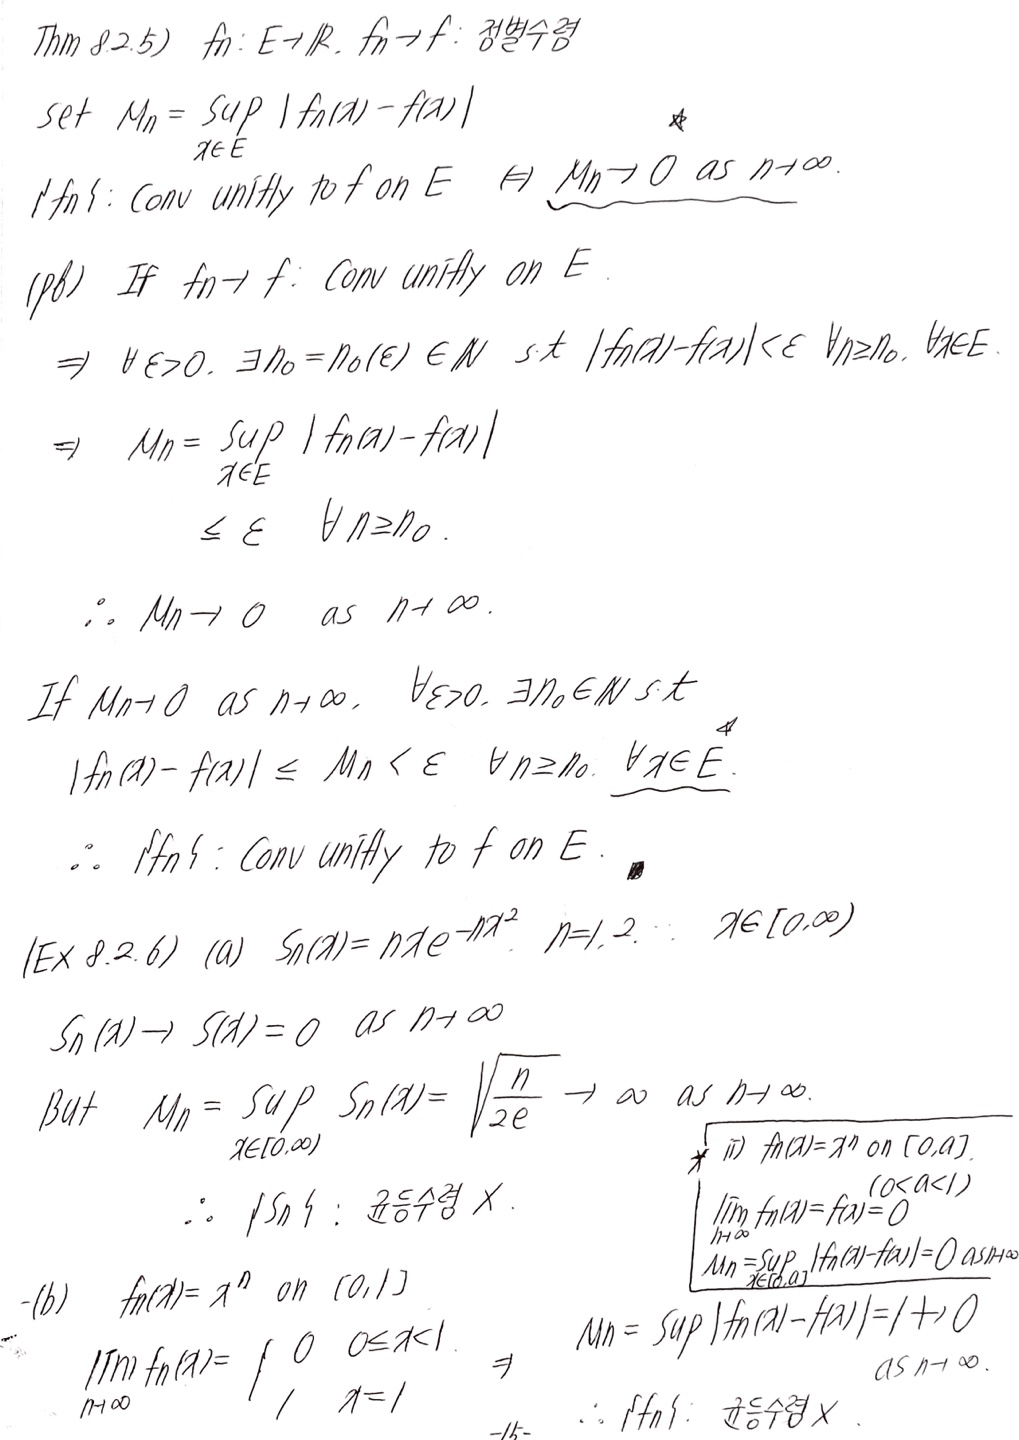 Thm 8.2.5) fn: E→ℝ. fn→f: 점별수렴
set Mn = sup |fn(x) - f(x)|
x∈E
{fn}: Conv unifly to f on E ⇔ Mn→0 as n→∞.
(pf) If fn→f: Conv unifly on E.
⇒ ∀ε>0. ∃n₀=n₀(ε)∈ℕ s.t |fn(x)-f(x)|<ε ∀n≥n₀. ∀x∈E.
⇒ Mn = sup |fn(x) - f(x)|
x∈E
≤ ε ∀n≥n₀.
∴ Mn→0 as n→∞.
If Mn→0 as n→∞. ∀ε>0. ∃n₀∈ℕ s.t
|fn(x) - f(x)| ≤ Mn < ε ∀n≥n₀. ∀x∈E.
∴ {fn}: Conv unifly to f on E. ■
(Ex 8.2.6) (a) Sn(x) = nxe^{-nx²}. n=1.2... x∈[0,∞)
Sn(x)→S(x)=0 as n→∞
But Mn = sup Sn(x) = √(n/2e) → ∞ as n→∞.
x∈[0,∞)
∴ {Sn}: 균등수렴 X.
* ii) fn(x)=xⁿ on [0,a].
(0<a<1)
lim fn(x)=f(x)=0
n→∞
Mn=sup |fn(x)-f(x)|=0 as n→∞
x∈[0,a]
-(b) fn(x) = xⁿ on [0,1]
lim fn(x) = { 0 0≤x<1.
n→∞
1 x=1
⇒ Mn = sup|fn(x)-f(x)|=1↛0
as n→∞.
∴ {fn}: 균등수렴 X.
-15-